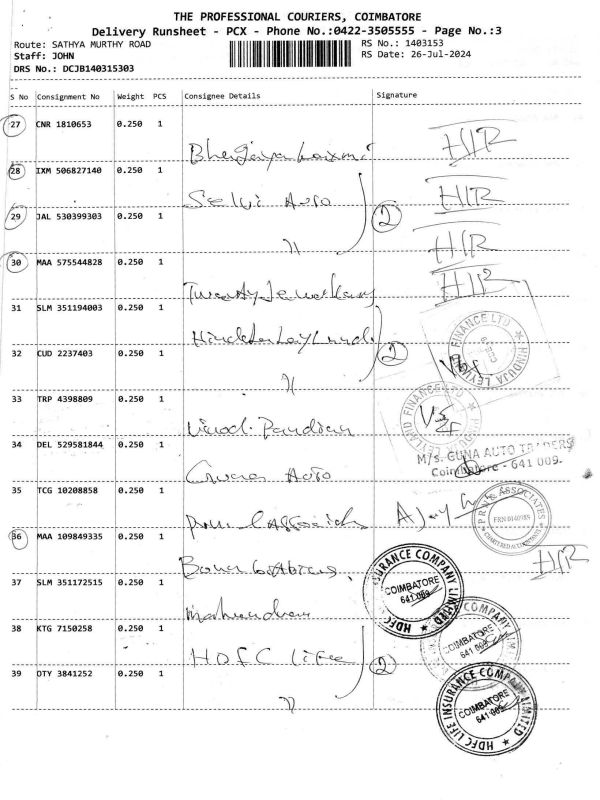 THE PROFESSIONAL COURIERS, COIMBATORE
Delivery Runsheet - PCX - Phone No.:0422-3505555 - Page No.:3
Route: SATHYA MURTHY ROAD
RS No.: 1403153
Staff: JOHN
RS Date: 26-Jul-2024
DRS No.: DCJB140315303
S No Consignment No Weight PCS Consignee Details Signature
27 CNR 1810653 0.250 1
28 IXM 506827140 0.250 1
Selvi Auto
29 JAL 530399303 0.250 1
2
30 MAA 575544828 0.250 1
31 SLM 351194003 0.250 1
32 CUD 2237403 0.250 1
2
HINDUJA LEYLAND FINANCE LTD
33 TRP 4398809 0.250 1
Vinod. Pandian
HINDUJA LEYLAND FINANCE LTD
34 DEL 529581844 0.250 1
Guna Auto
M/s. GUNA AUTO TRADERS
Coimbatore - 641 009.
35 TCG 10208858 0.250 1
PRN & ASSOCIATES
CHARTERED ACCOUNTANTS
36 MAA 109849335 0.250 1
37 SLM 351172515 0.250 1
Mahendran
HDFC LIFE INSURANCE COMPANY LIMITED
COIMBATORE
641 009
38 KTG 7150258 0.250 1
HDFC Life
2
COMPANY LIMITED
COIMBATORE
641 009
39 OTY 3841252 0.250 1
HDFC LIFE INSURANCE COMPANY LIMITED
COIMBATORE
641 009